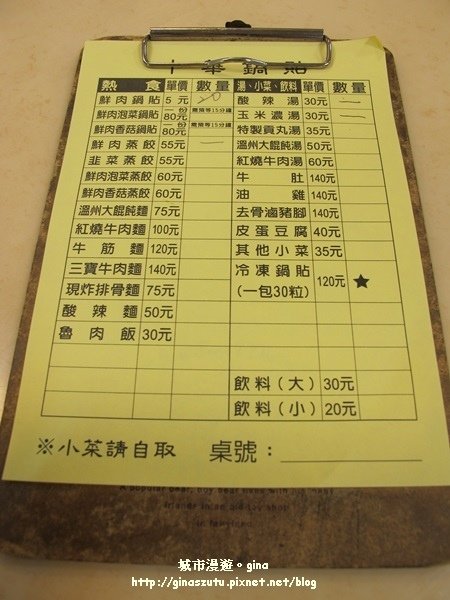 十華鍋貼
熟食 單價 數量 湯、小菜、飲料 單價 數量
鮮肉鍋貼 5元 20 酸辣湯 30元 一
鮮肉泡菜鍋貼 一份80元 需預等15分鐘 玉米濃湯 30元 一
鮮肉香菇鍋貼 一份80元 需預等15分鐘 特製貢丸湯 35元
鮮肉蒸餃 55元 一 溫州大餛飩湯 50元
韭菜蒸餃 60元 紅燒牛肉湯 60元
鮮肉泡菜蒸餃 60元 牛肚 140元
鮮肉香菇蒸餃 60元 油雞 140元
溫州大餛飩麵 75元 去骨滷豬腳 140元
紅燒牛肉麵 100元 皮蛋豆腐 40元
牛筋麵 120元 其他小菜 35元
三寶牛肉麵 140元 冷凍鍋貼
現炸排骨麵 75元 (一包30粒) 120元 ★
酸辣麵 50元
魯肉飯 30元
飲料(大) 30元
飲料(小) 20元
※小菜請自取 桌號：
A popular bear, boy bear
friends in an old toy shop
in fairyland.
城市漫遊。gina
http://ginaszutu.pixnet.net/blog